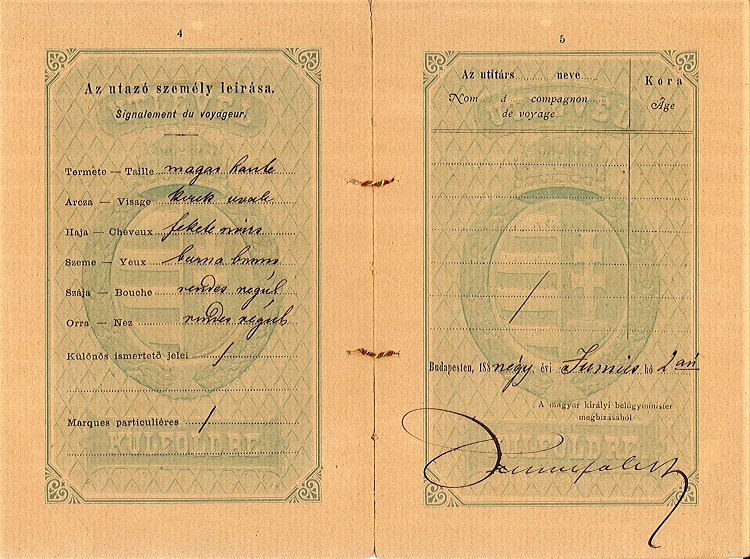 4
Az utazó személy leirása.
Signalement du voyageur.
Termete — Taille magas haute
Arcza — Visage kerek ovale
Haja — Cheveux fekete noirs
Szeme — Yeux barna bruns
Szája — Bouche rendes régul
Orra — Nez rendes régul
Különös ismertető jelei /
Marques particuliéres /
KÜLFÖLDRE
5
Az utitárs neve
Kora
Nom d compagnon
Âge
de voyage
/
Budapesten, 188négy évi Junius hó 2 án
A magyar királyi belügyminister
megbizásából
KÜLFÖLDRE